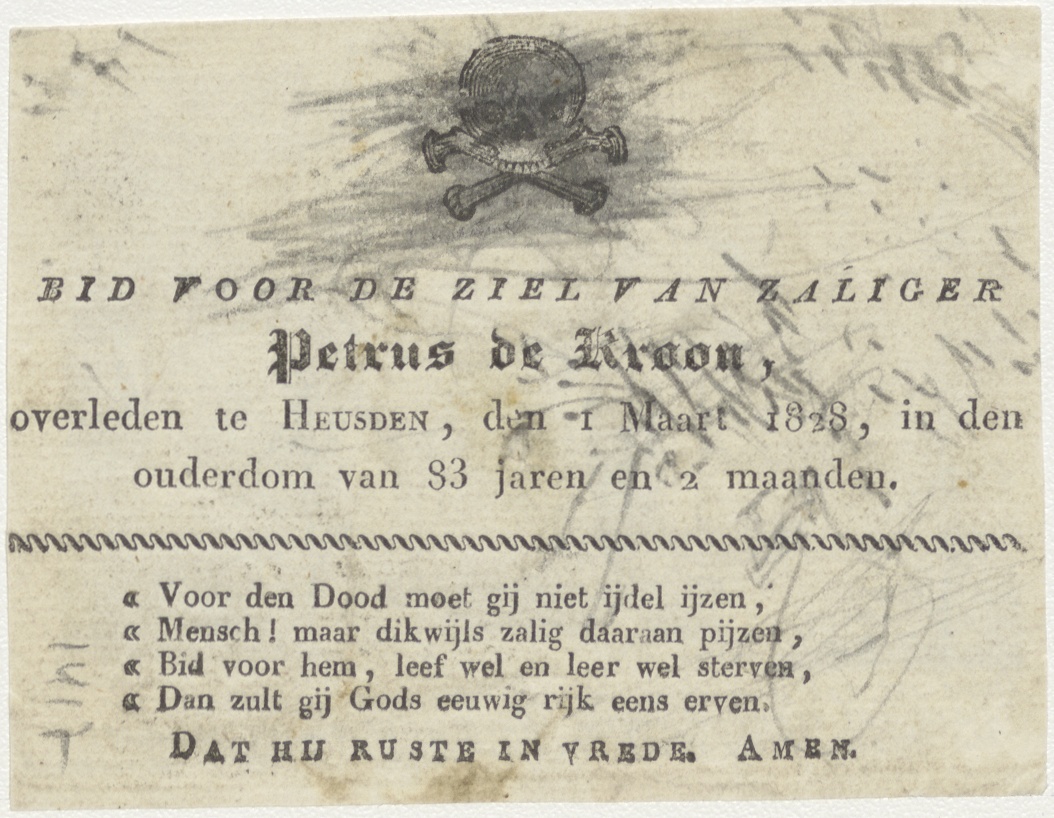 BID VOOR DE ZIEL VAN ZALIGER
Petrus de Kroon,
overleden te HEUSDEN, den 1 Maart 1828, in den
ouderdom van 83 jaren en 2 maanden.
« Voor den Dood moet gij niet ijdel ijzen,
« Mensch! maar dikwijls zalig daaraan pijzen,
« Bid voor hem, leef wel en leer wel sterven,
« Dan zult gij Gods eeuwig rijk eens erven.
DAT HIJ RUSTE IN VREDE. AMEN.